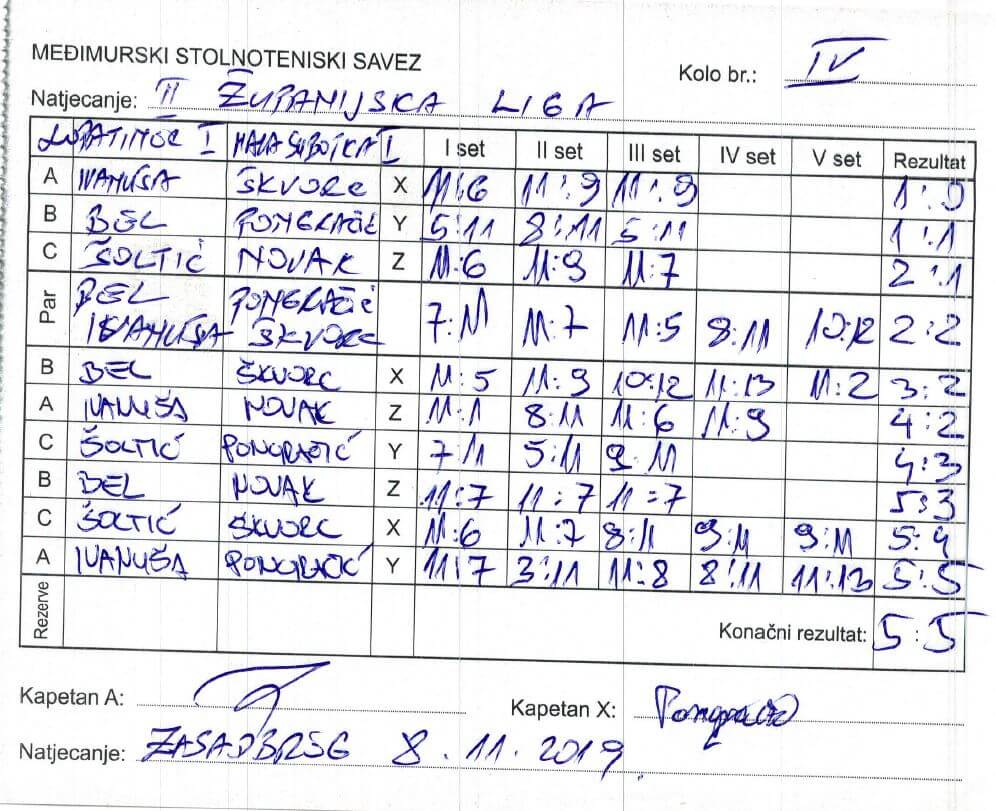 MEĐIMURSKI STOLNOTENISKI SAVEZ
Kolo br.: IV
Natjecanje: II ŽUPANIJSKA LIGA
I MALA SUBOTICA I I set II set III set IV set V set Rezultat
A IVANUŠA ŠKVORC X 11:6 11:9 11:9 1:0
B BEL PONGRAČIĆ Y 5:11 8:11 5:11 1:1
C ŠOLTIĆ NOVAK Z 11:6 11:9 11:7 2:1
Par BEL PONGRAČIĆ
IVANUŠA ŠKVORC 7:11 11:7 11:5 8:11 10:12 2:2
B BEL ŠKVORC X 11:5 11:9 10:12 11:13 11:2 3:2
A IVANUŠA NOVAK Z 11:1 8:11 11:6 11:9 4:2
C ŠOLTIĆ PONGRAČIĆ Y 7:11 5:11 9:11 4:3
B BEL NOVAK Z 11:7 11:7 11:7 5:3
C ŠOLTIĆ ŠKVORC X 11:6 11:7 8:11 9:11 9:11 5:4
A IVANUŠA PONGRAČIĆ Y 11:7 3:11 11:8 8:11 11:13 5:5
Rezerve Konačni rezultat: 5:5
Kapetan A: Kapetan X:
Natjecanje: ZASADBREG 8.11.2019.